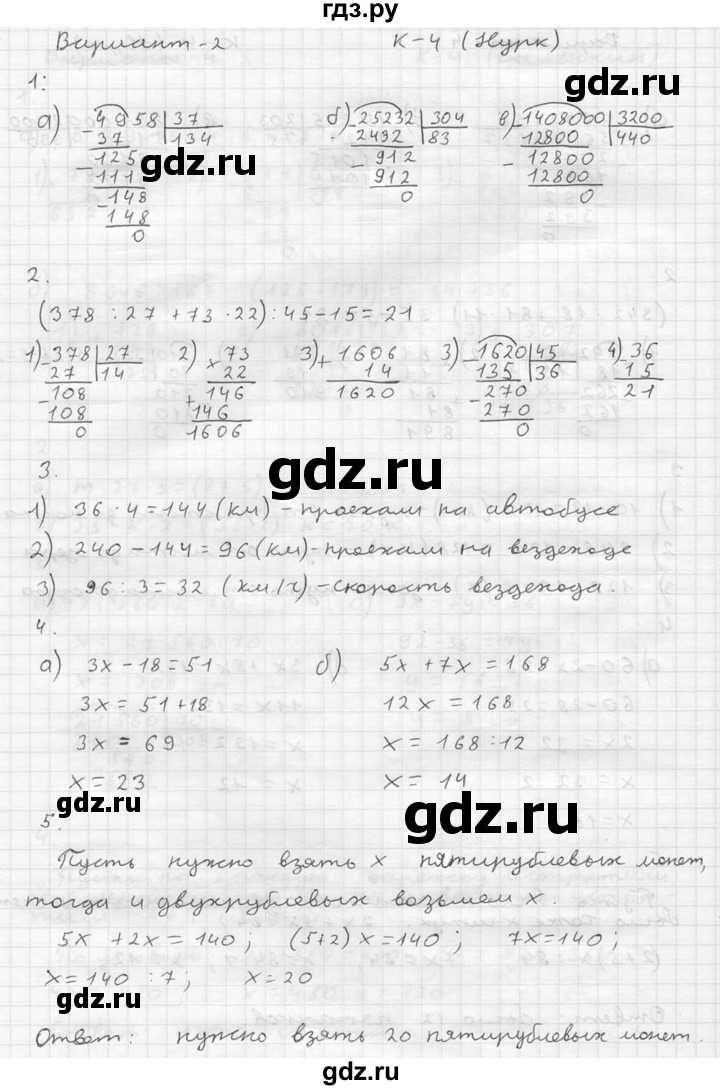 гдз.ру
Вариант-2 К-4 (Нурк)
1:
а) 4958 | 37 б) 25232 | 304 в) 1408000 | 3200
37 | 134 2432 | 83 12800 | 440
125 912 12800
111 912 12800
148 0 0
148
0
gdz.ru gdz.ru
2.
(378 : 27 + 73 · 22) : 45 - 15 = 21
1) 378 | 27 2) × 73 3) + 1606 3) 1620 | 45 4) - 36
27 | 14 22 14 135 | 36 15
108 + 146 1620 270 21
108 146 270
0 1606 0
gdz.ru
3.
1) 36 · 4 = 144 (км) - проехали на автобусе
2) 240 - 144 = 96 (км) - проехали на вездеходе
3) 96 : 3 = 32 (км/ч) - скорость вездехода.
gdz.ru
4.
а) 3x - 18 = 51 б) 5x + 7x = 168
3x = 51 + 18 12x = 168
3x = 69 x = 168 : 12
x = 23 x = 14
gdz.ru gdz.ru
5.
Пусть нужно взять x пятирублевых монет,
тогда и двухрублевых возьмем x.
5x + 2x = 140; (5+2) x = 140; 7x = 140;
x = 140 : 7; x = 20
gdz.ru gdz.ru
Ответ: нужно взять 20 пятирублевых монет.
gdz.ru